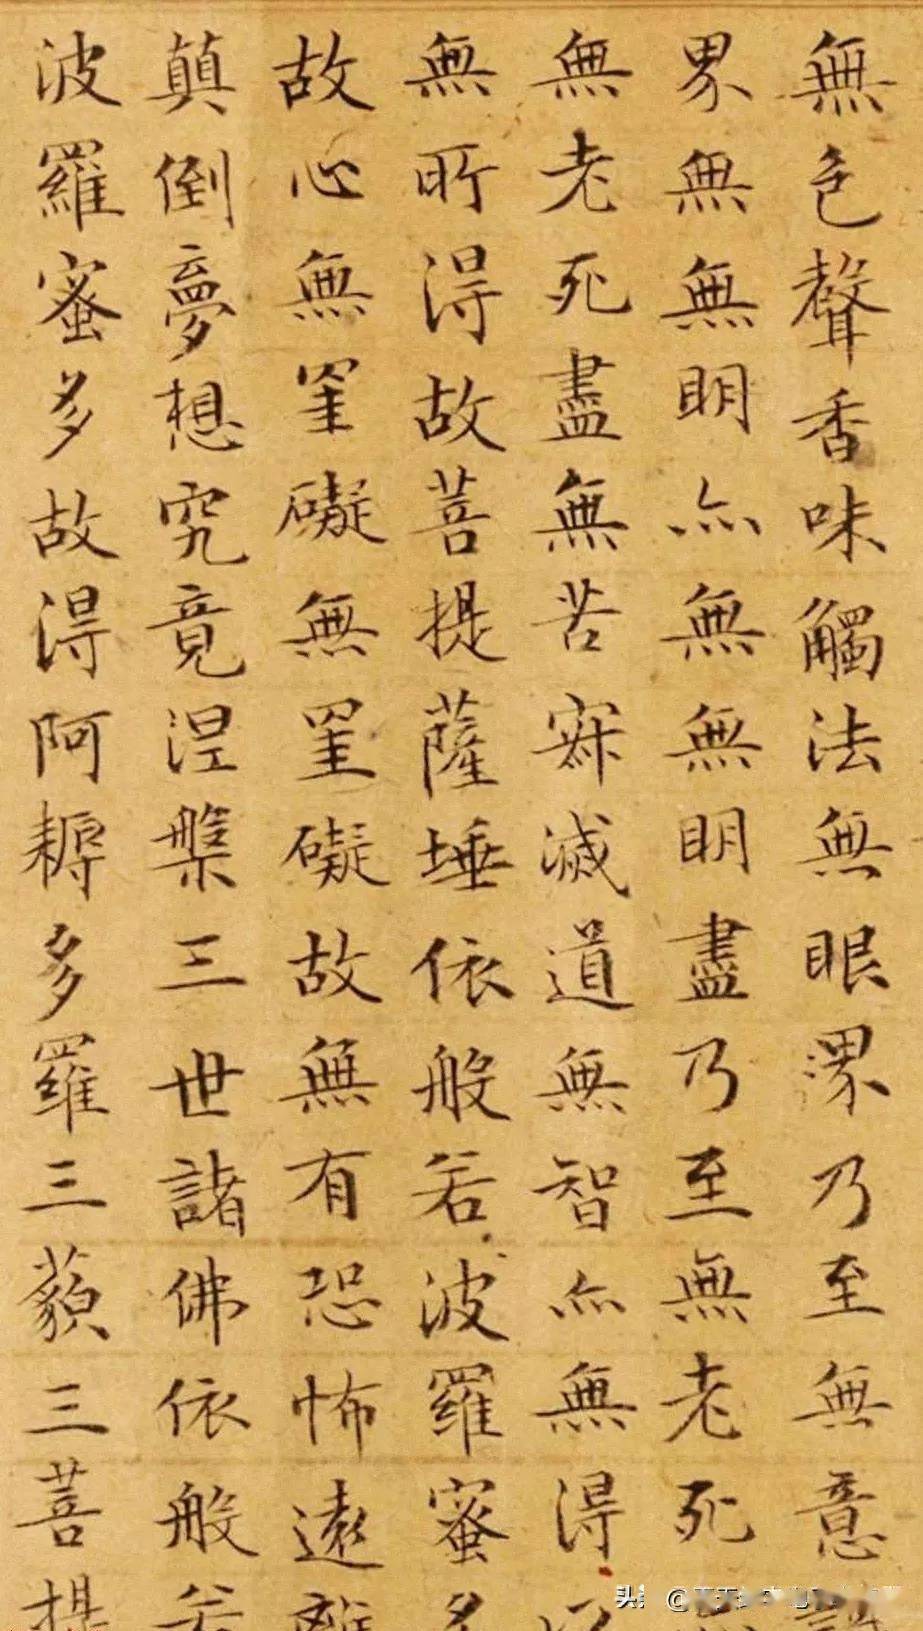 無色聲香味觸法無眼界乃至無意
界無無明亦無無明盡乃至無老死
無老死盡無苦寂滅道無智亦無得
無所得故菩提薩埵依般若波羅蜜多
故心無罣礙無罣礙故無有恐怖遠離
顛倒夢想究竟涅槃三世諸佛依般若
波羅蜜多故得阿耨多羅三藐三菩提